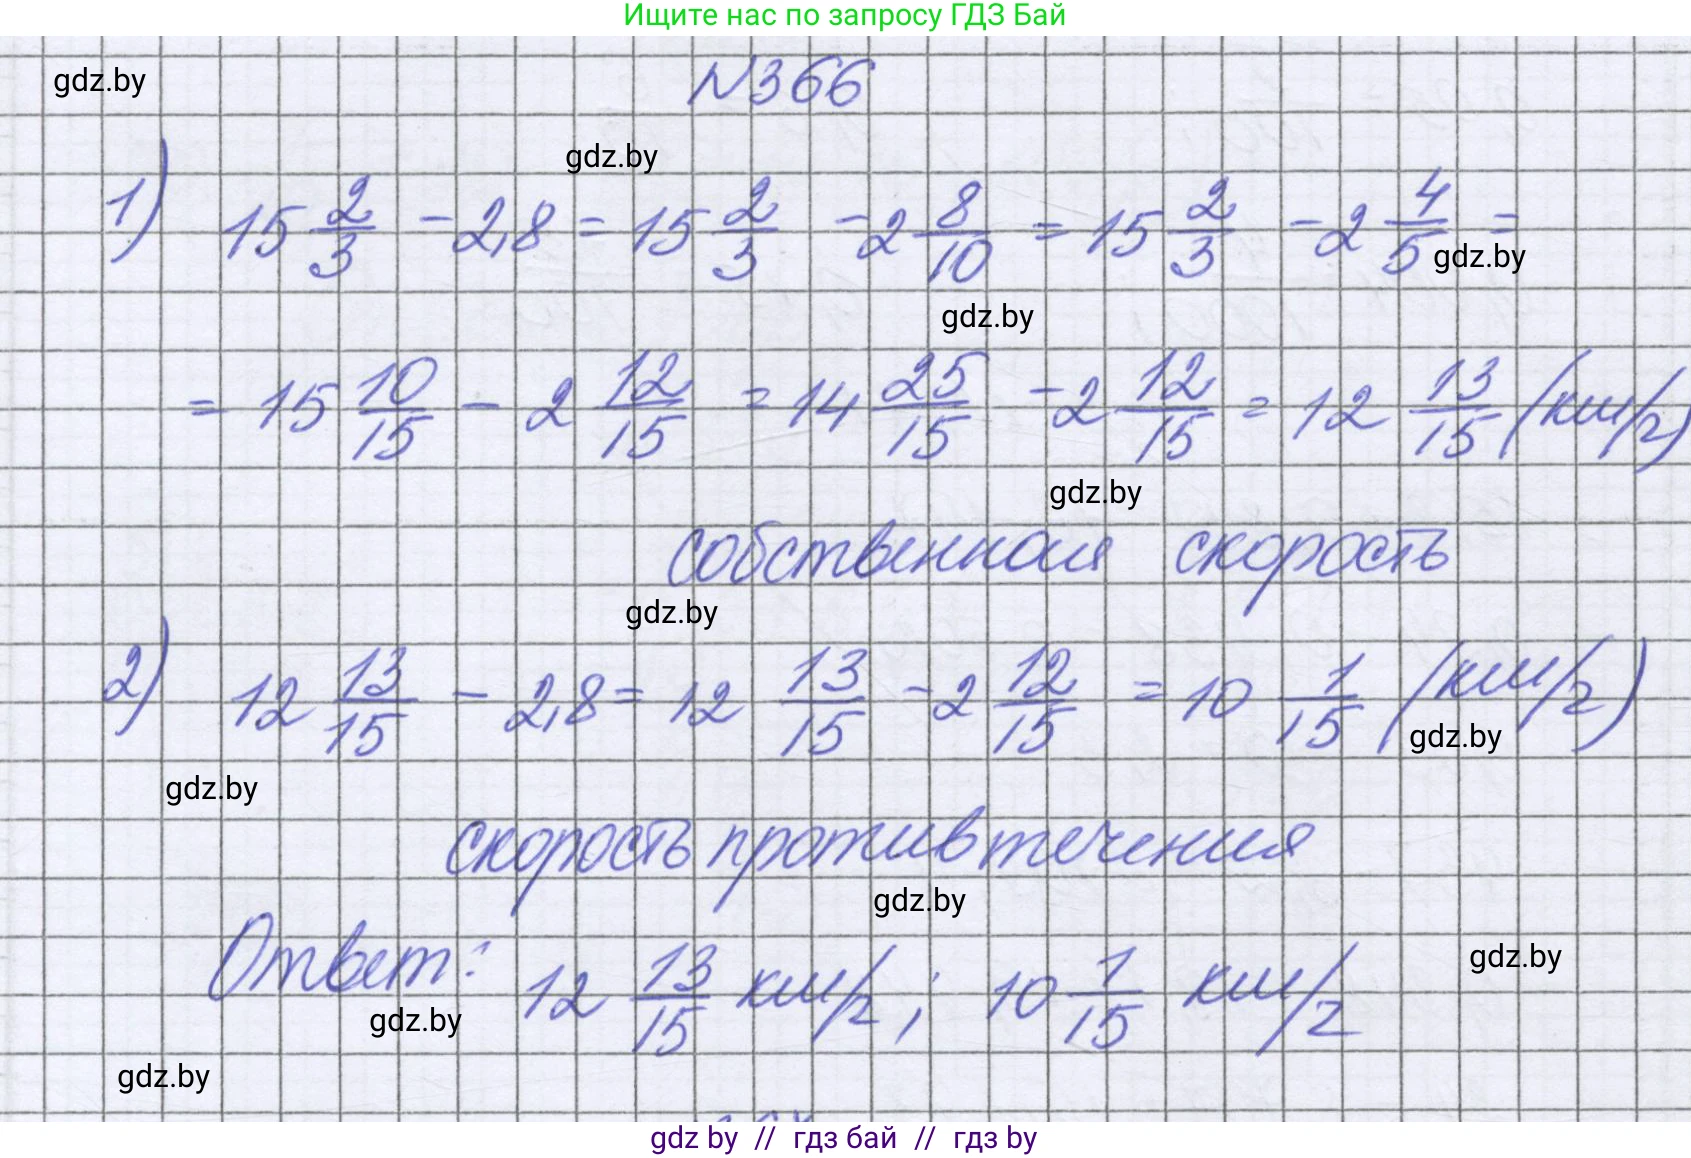 Ищите нас по запросу ГДЗ Бай
gdz.by
№366
gdz.by
1) 15 2/3 - 2,8 = 15 2/3 - 2 8/10 = 15 2/3 - 2 4/5 =
gdz.by
gdz.by
= 15 10/15 - 2 12/15 = 14 25/15 - 2 12/15 = 12 13/15 (км/ч)
gdz.by
собственная скорость
gdz.by
2) 12 13/15 - 2,8 = 12 13/15 - 2 12/15 = 10 1/15 (км/ч)
gdz.by
gdz.by
скорость против течения
gdz.by
Ответ: 12 13/15 км/ч; 10 1/15 км/ч
gdz.by
gdz.by
gdz.by
gdz by // гдз бай // гдз by